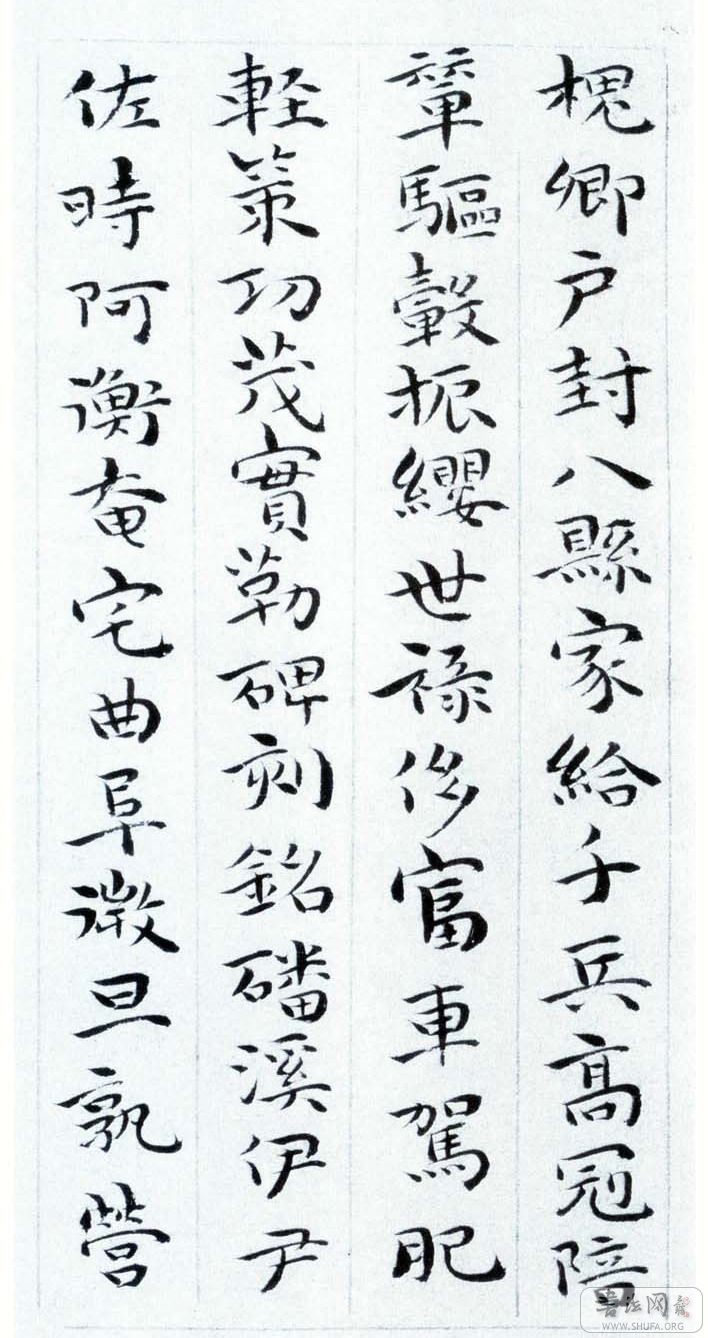 槐卿户封八縣家給千兵高冠陪
輦驅轂振纓世祿侈富車駕肥
軽策功茂實勒碑刻銘磻溪伊尹
佐時阿衡奄宅曲阜微旦孰營
書法网
WWW.SHUFA.ORG